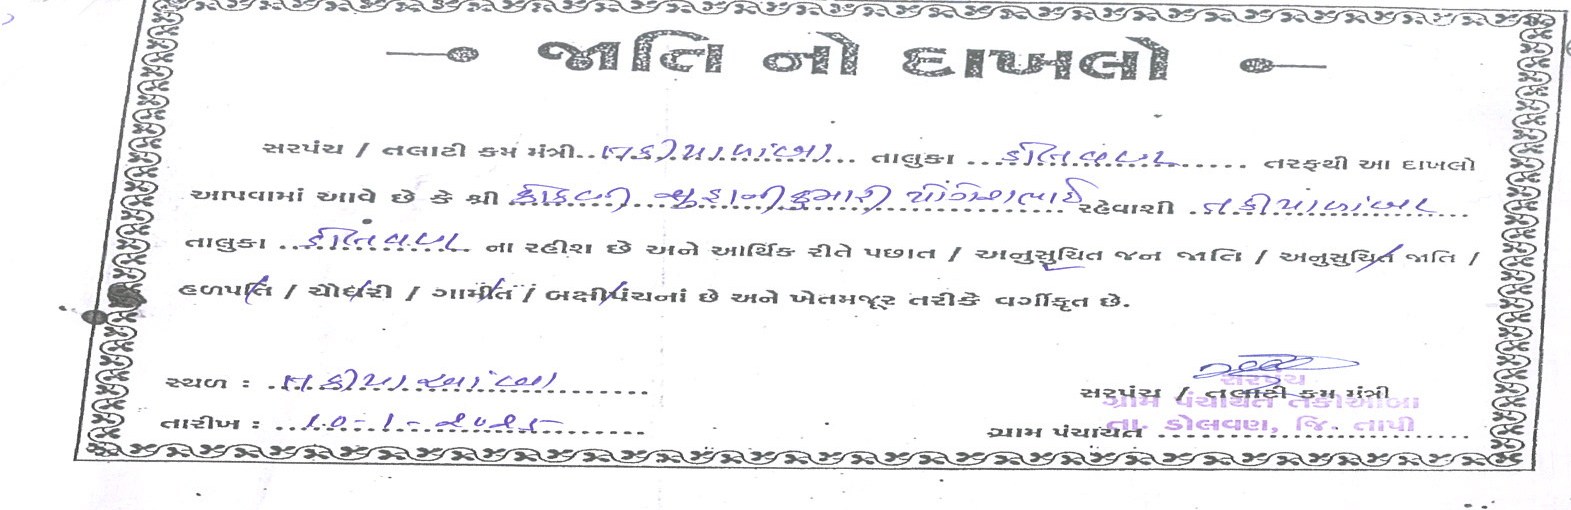 જાતિ નો દાખલો
સરપંચ / તલાટી કમ મંત્રી તાલુકા ડોલવણ તરફથી આ દાખલો
આપવામાં આવે છે કે શ્રી રહેવાશી
તાલુકા ડોલવણ ના રહીશ છે અને આર્થિક રીતે પછાત / અનુસુચિત જન જાતિ / અનુસુચિત જાતિ /
હળપતિ / ચોધરી / ગામીત / બક્ષીપંચનાં છે અને ખેતમજૂર તરીકે વર્ગીકૃત છે.
સ્થળ :
તારીખ : ૧૦-૧-૨૦૨૫
સરપંચ
સરપંચ / તલાટી કમ મંત્રી
ગ્રામ પંચાયત તકીઆંબા
તા. ડોલવણ, જિ. તાપી
ગ્રામ પંચાયત